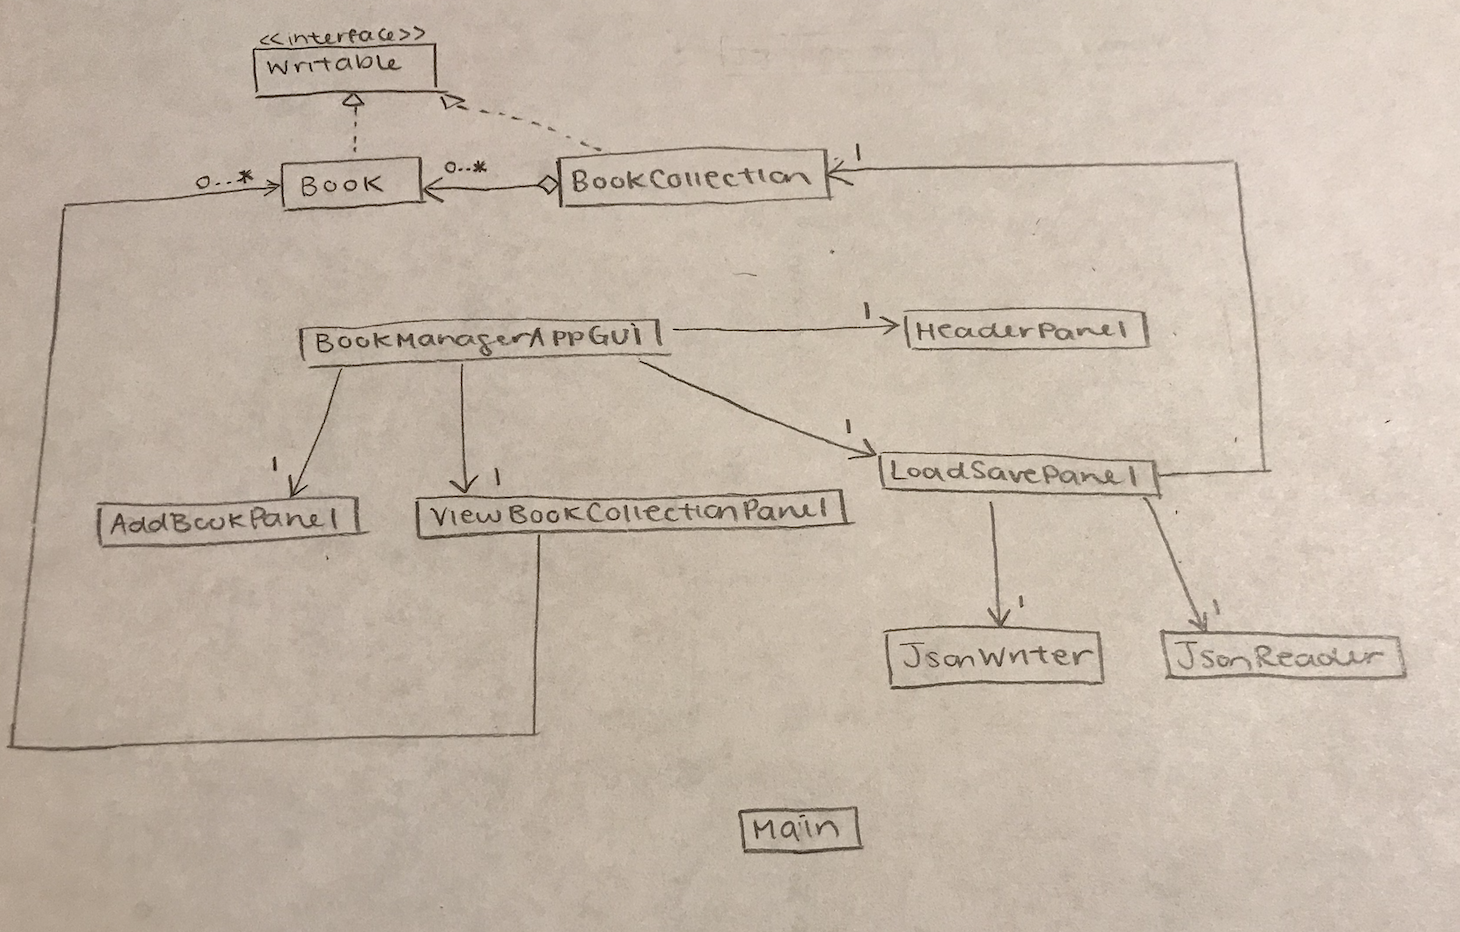 <<interface>>
Writable
0..*
Book
0..*
BookCollection
1
BookManagerAppGUI
1
HeaderPanel
1
1
1
AddBookPanel
ViewBookCollectionPanel
LoadSavePanel
1
1
JsonWriter
JsonReader
Main